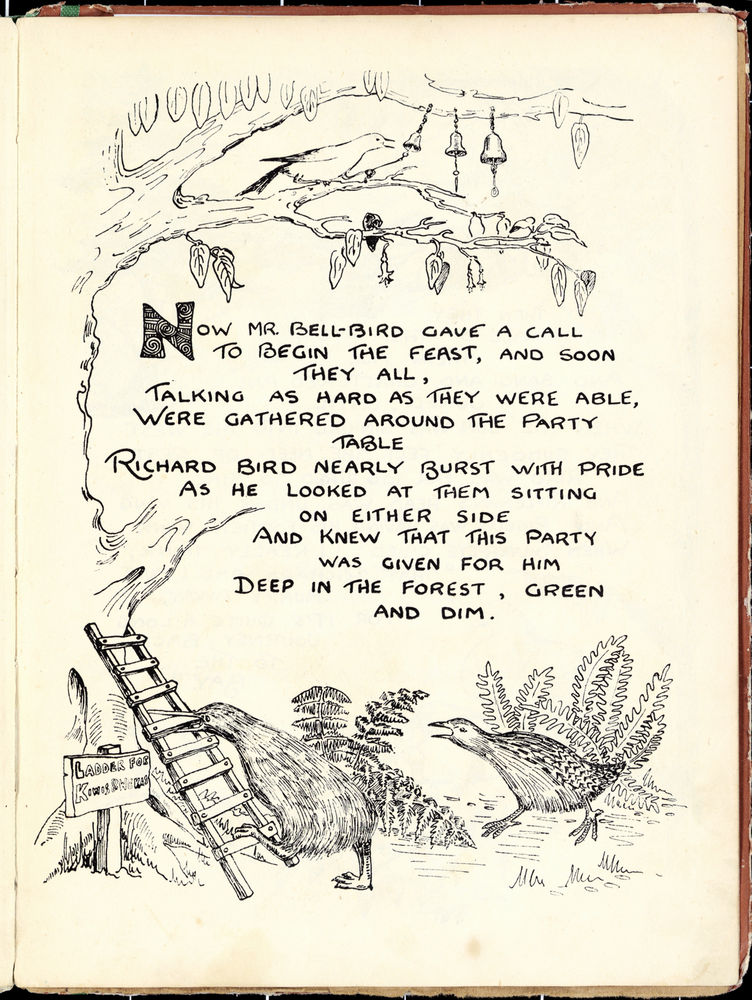 NOW MR. BELL-BIRD GAVE A CALL
TO BEGIN THE FEAST, AND SOON
THEY ALL,
TALKING AS HARD AS THEY WERE ABLE,
WERE GATHERED AROUND THE PARTY
TABLE
RICHARD BIRD NEARLY BURST WITH PRIDE
AS HE LOOKED AT THEM SITTING
ON EITHER SIDE
AND KNEW THAT THIS PARTY
WAS GIVEN FOR HIM
DEEP IN THE FOREST, GREEN
AND DIM.
LADDER FOR
KIWIS & WEKAS